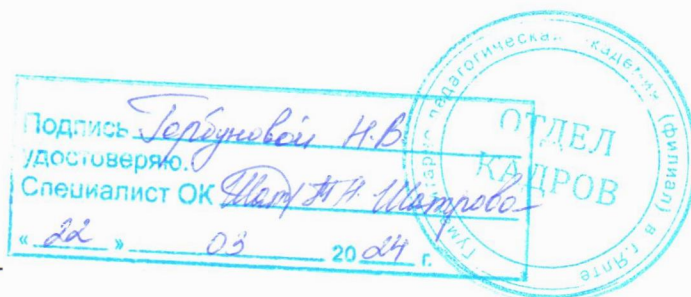 Подпись Горбуновой Н.В.
удостоверяю.
Специалист ОК Шат Т.Н. Шатрова
« 22 » 03 2024 г.
Гуманитарно-педагогическая академия (филиал) в г.Ялте
ОТДЕЛ
КАДРОВ